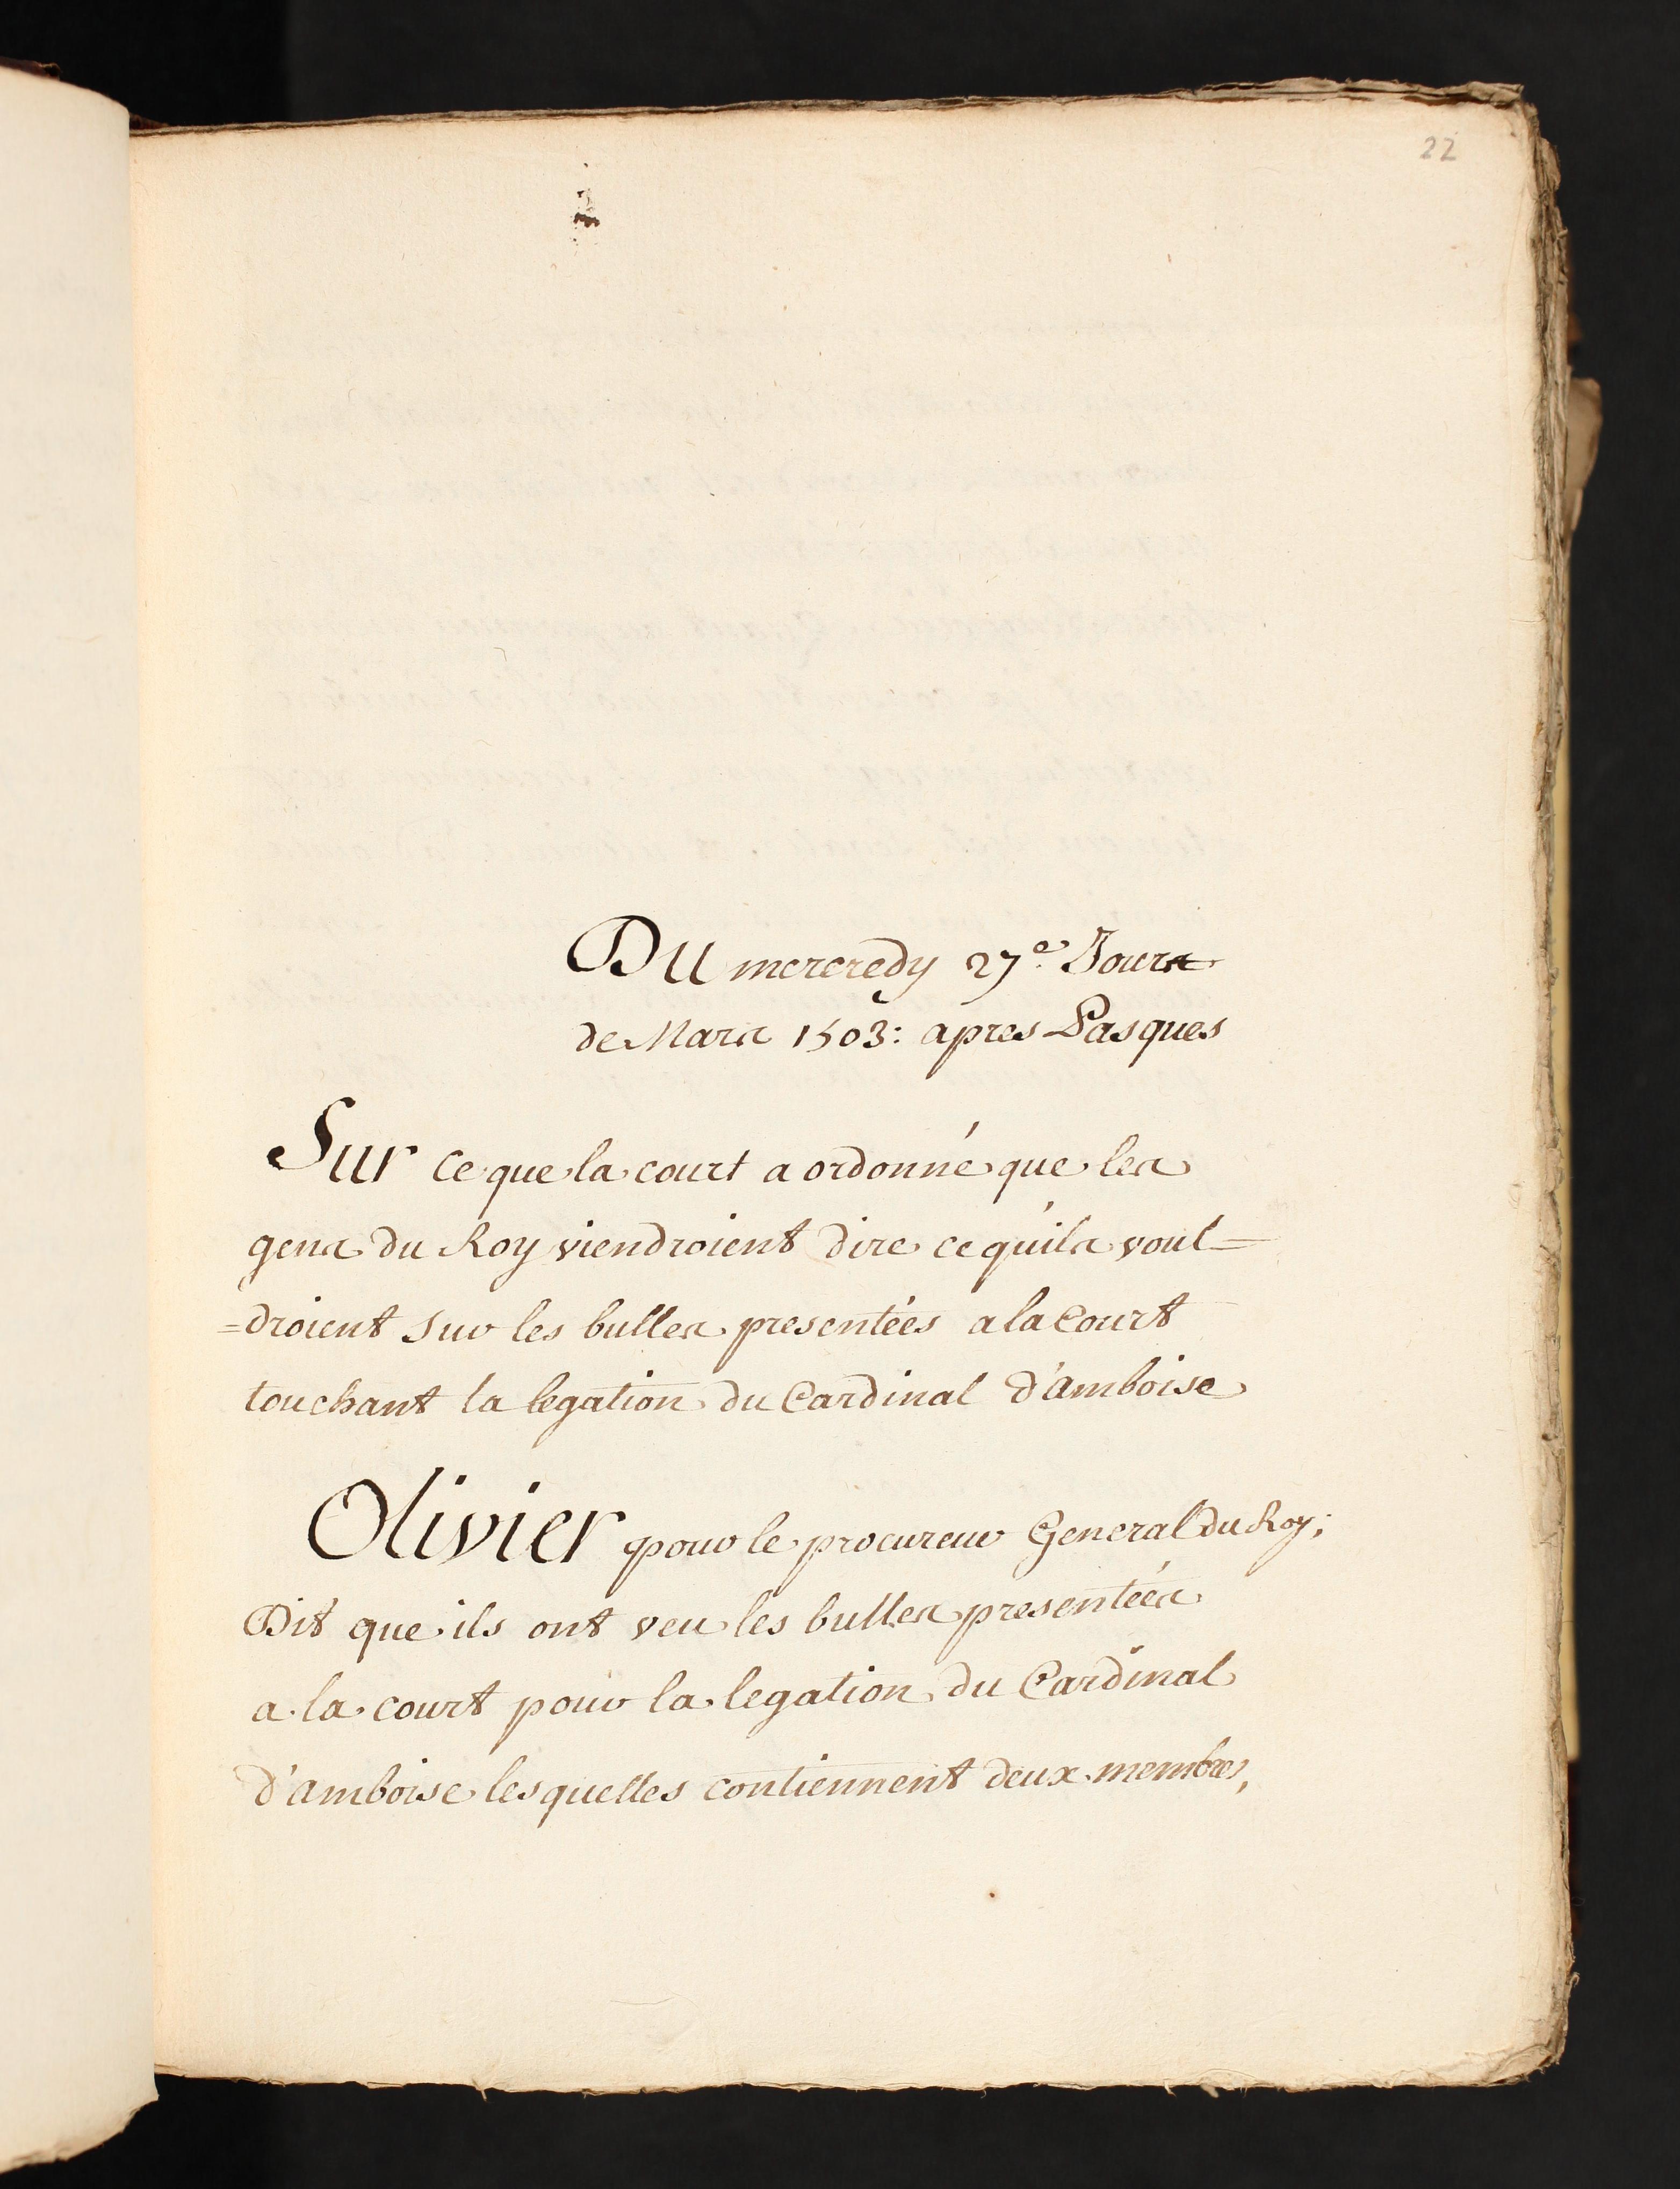 22
Du mercredy 27e. Jour
de Mars 1503: apres Pasques
Sur ce que la court a ordonné que les
gens du Roy viendroient dire ce qu'ils voul=
=droient sur les bulles presentées a la Court
touchant la legation du Cardinal d'amboise
Olivier pour le procureur General du Roy;
Dit que ils ont veu les bulles presentées
a la court pour la legation du Cardinal
d'amboise lesquelles contiennent deux membres,